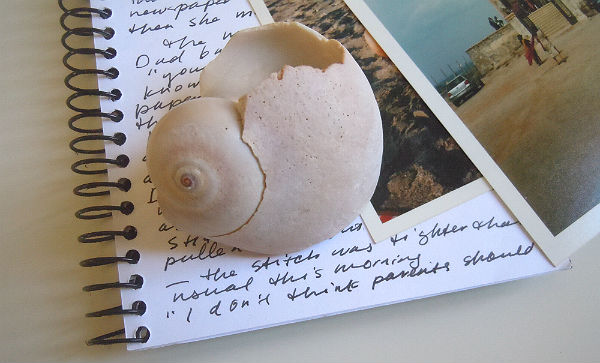 newspaper
then she m
the
Dad
"you
know
pape
the
I
a
sti
pulled
— the stitch was tighter tha
usual this morning
"I don't think parents should